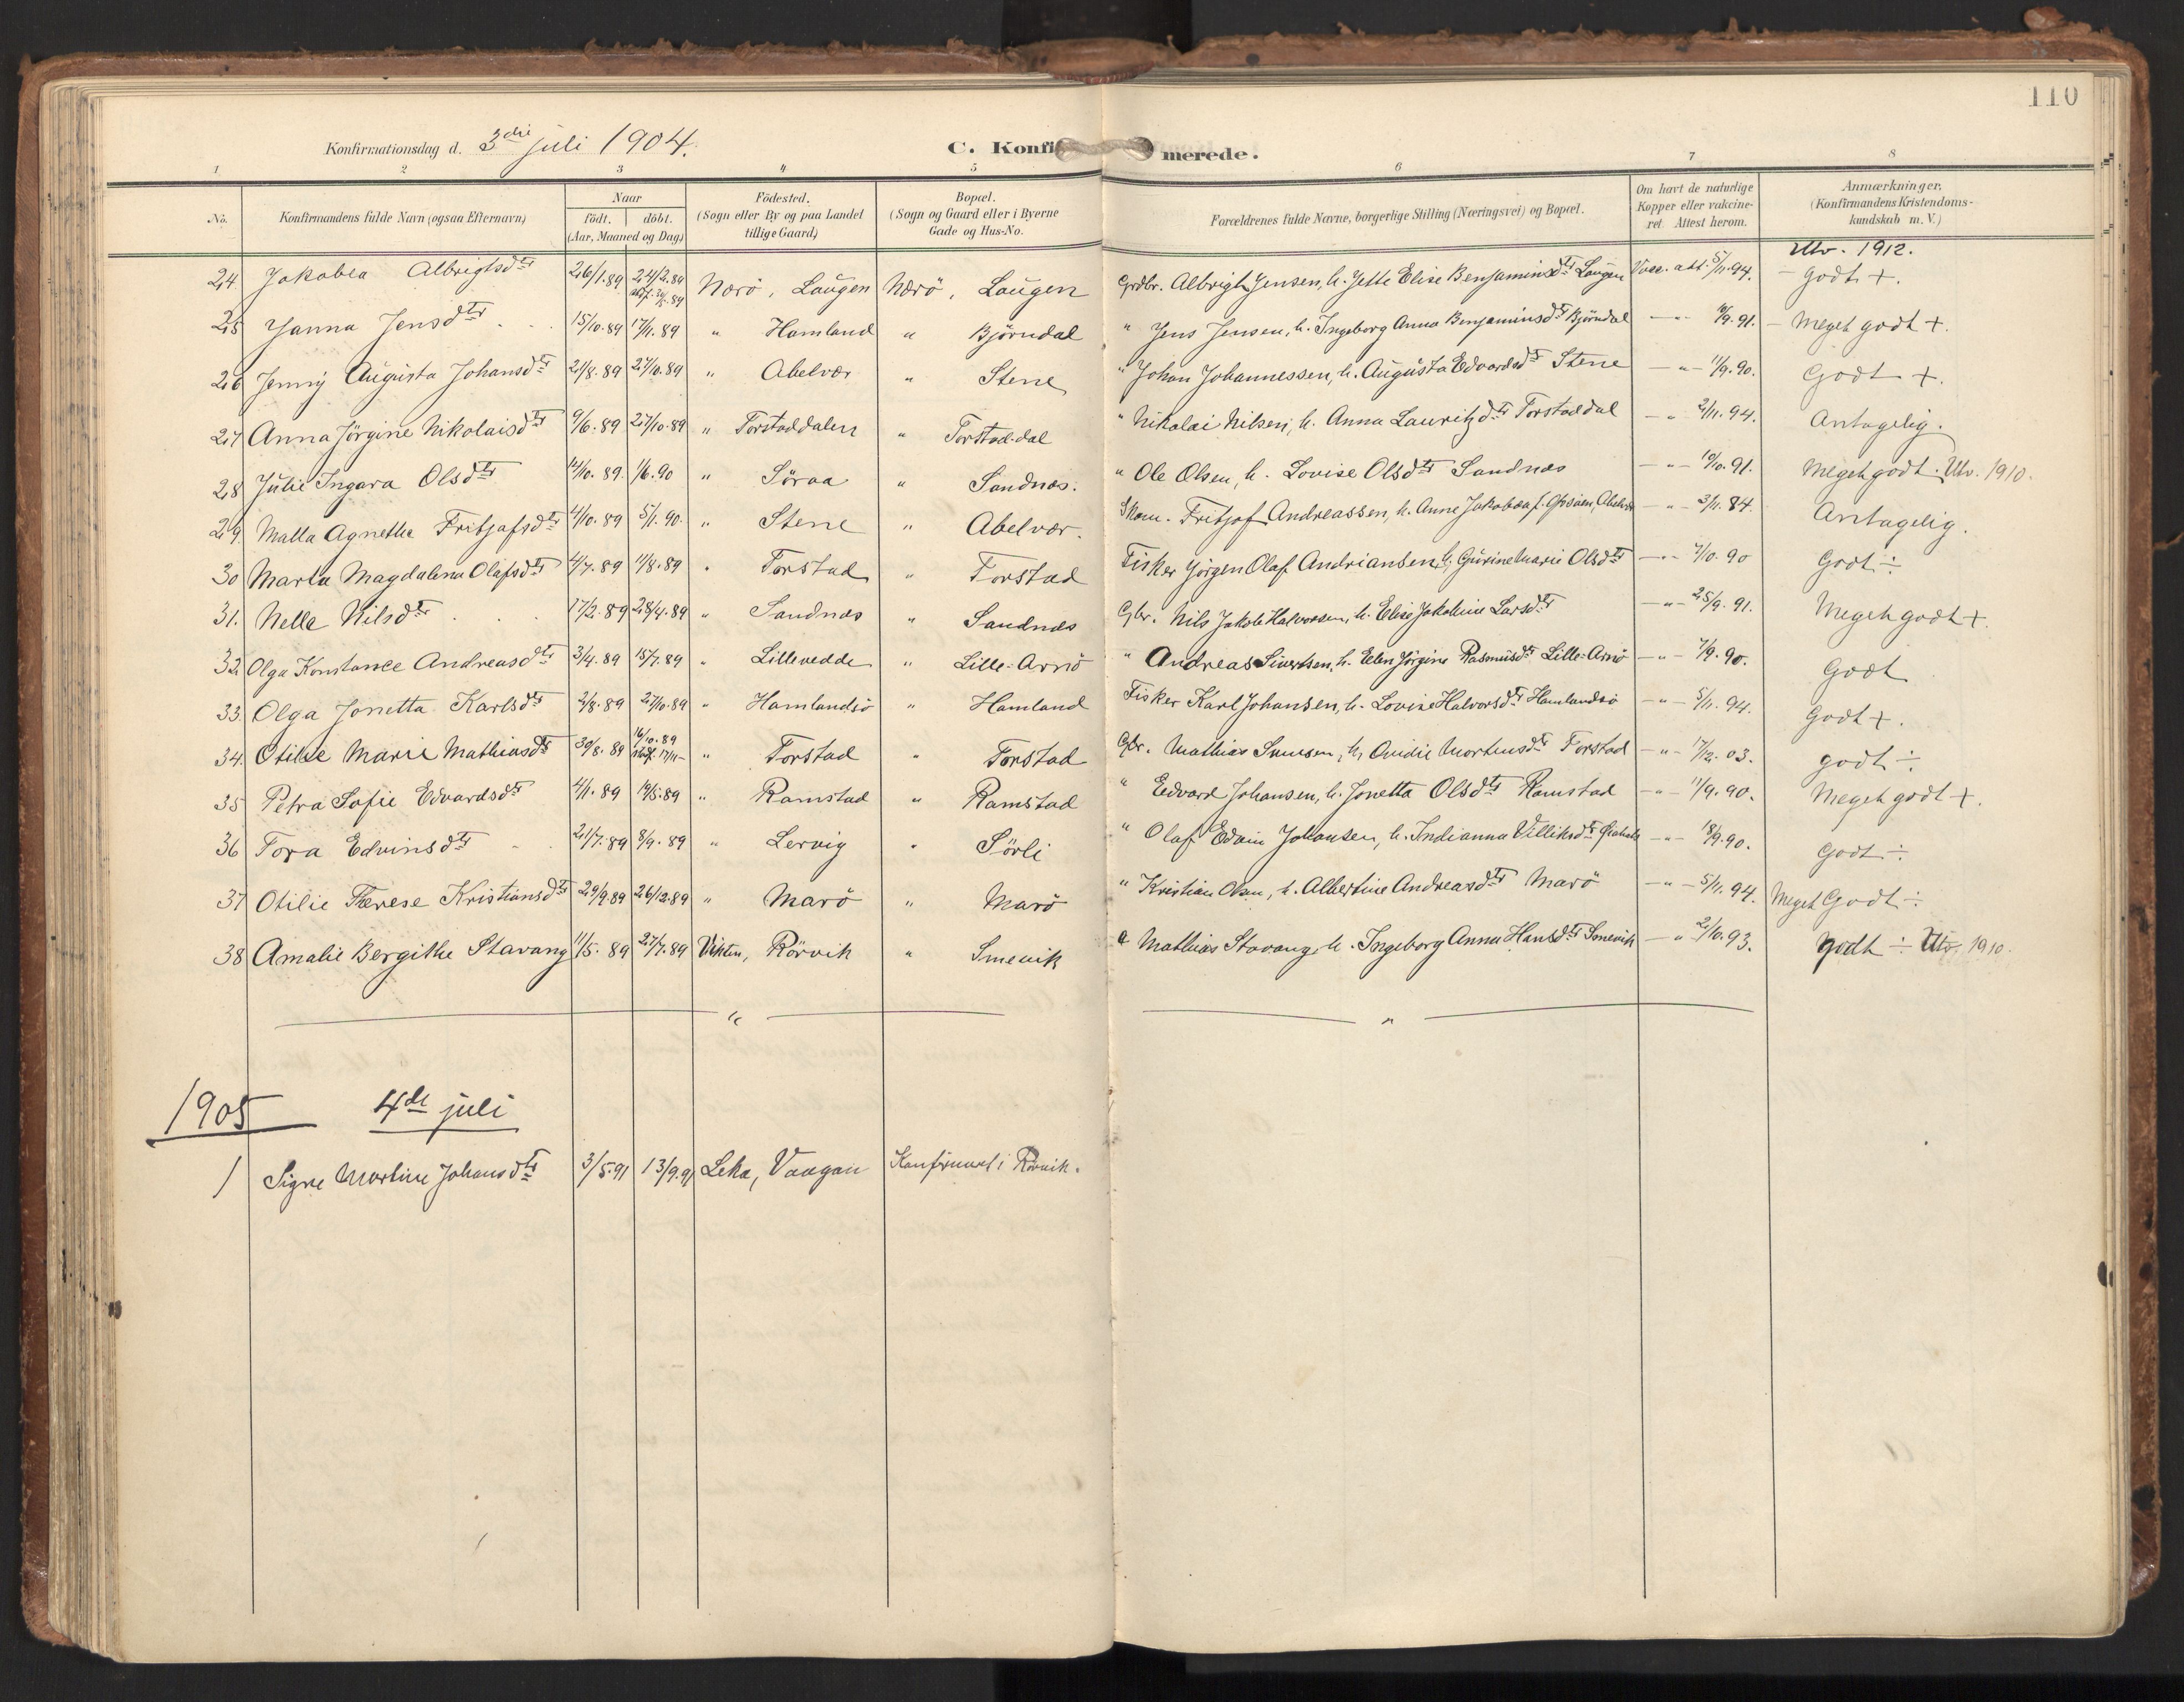 110
Konfirmationsdag d. 3die juli 1904.
C. Konfirmerede.
1 2 3 4 5 6 7 8
No. Konfirmandens fulde Navn (ogsaa Efternavn) Naar födt. döbt. (Aar, Maaned og Dag) Födested. (Sogn eller By og paa Landet tillige Gaard) Bopæl. (Sogn og Gaard eller i Byerne Gade og Hus-No. Forældrenes fulde Navne, borgerlige Stilling (Næringsvei) og Bopæl. Om havt de naturlige Kopper eller vakcineret. Attest herom. Anmærkninger. (Konfirmandens Kristendomskundskab m. V.)
Utv. 1912.
24 Jakobea Albrigtsdtr 26/1.89 24/2.89 Nærö, Laugen Nærö, Laugen Grdbr. Albrigt Jensen, h. Jette Elise Benjaminsdtr Laugen Vacc. att. 5/11.94. - godt +.
25 Janna Jensdtr 15/10.89 17/11.89 " Hamland " Björndal " Jens Jensen, h. Ingeborg Anna Benjaminsdtr Björndal - " - /9.91. - Meget godt +.
26 Jenny Augusta Johansdtr 21/8.89 27/10.89 " Abelvær " Stene " Johan Johannessen, h. Augusta Edvardsdtr Stene - " - 11/9.90. Godt +.
27 Anna Jörgine Nikolaisdtr 9/6.89 27/10.89 " Torstaddalen " Torstad-dal " Nikolai Nilsen, h. Anna Lauritzdtr Torstaddal - " 2/11.94. Antagelig.
28 Julie Ingara Olsdtr 14/10.89. 1/6.90 " Söraa " Sandnæs. " Ole Olsen, h. Lovise Olsdtr Sandnæs - " - 10/10.91. Meget godt. Utv. 1910.
29. Malla Agnethe Fritjafsdtr 4/10.89 5/1.90. " Stene " Abelvær. Skom. Fritjof Andreassen, h. Anne Jakobæa f. - " - 3/11.84. Antagelig.
30 Marta Magdalena Olafsdtr 4/7.89 11/8.89 " Torstad " Torstad Fisker Jörgen Olaf Andriansen, h. Gurine Marie Olsdtr - " - 7/10.90 Godt ÷
31. Nelle Nilsdtr 17/2.89 28/4.89 " Sandnæs " Sandnæs Gbr. Nils Jakob Halvorsen, h. Elise Jakobine Larsdtr - " - 25/9.91. Meget godt +.
32 Olga Konstance Andreasdtr 3/4.89 15/7.89 " Lillevedde " Lille-Arnö " Andreas Sivertsen, h. Elen Jörgine Rasmusdtr Lille-Arnö - " - 7/9.90. Godt
33. Olga Jonetta Karlsdtr 2/8.89 27/10.89 " Hamlandsö " Hamland Fisker Karl Johansen, h. Lovise Halvorsdtr Hamlandsö - " - 5/11.94. Godt +.
34. Otilie Marie Mathiasdtr 30/8.89 16/10.89 " Torstad " Torstad Gbr. Mathias h. Mortensdtr Torstad - " - 17/12.03. godt ÷
35 Petra Sofie Edvardsdtr 4/1.89 19/5.89 " Ramstad " Ramstad " Edvard Johansen, h. Jonetta Olsdtr Ramstad - " - 11/9.90. Meget godt +.
36 Tora Edvinsdtr 21/7.89 8/9.89 " Lervig " Sörli " Olaf Edvin Johansen, h. Indianna Villiksdtr - " - 18/9.90. Godt ÷
37 Otilie Therese Kristiansdtr 29/9.89 26/12.89 " Marö " Marö " Kristian Olsen, h. Albertine Andreasdtr Marö - " - 5/11.94. Meget Godt ÷
38 Amalie Bergithe Stavang 11/5.89 27/7.89 Vikten, Rörvik " Smevik " Mathias Stavang, h. Ingeborg Anna Hansdtr Smevik - " 2/10.93. Godt ÷ Utv. 1910.
" "
1905 4de juli
1 Signe Martine Johansdtr 3/5.91 13/9.91 Leka, Vaagan Konfirmert i Rörvik.